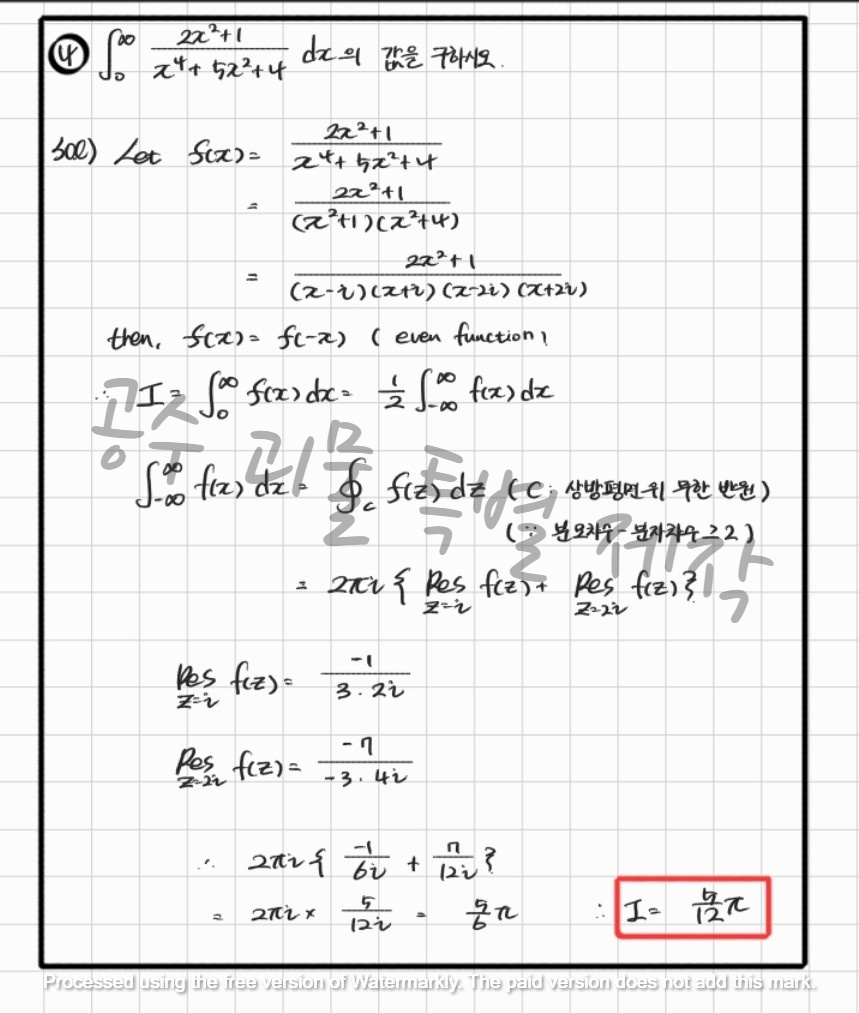 ④ ∫₀^∞ (2x²+1)/(x⁴+5x²+4) dx의 값을 구하시오.
sol) Let f(x) = (2x²+1)/(x⁴+5x²+4)
= (2x²+1)/((x²+1)(x²+4))
= (2x²+1)/((x-i)(x+i)(x-2i)(x+2i))
then, f(x) = f(-x) (even function)
∴ I = ∫₀^∞ f(x)dx = 1/2 ∫_{-∞}^∞ f(x)dx
공주 괴물 특별 제작
∫_{-∞}^∞ f(x)dx = ∮_C f(z)dz (C: 상방평면위 무한 반원)
(∵ 분모차수-분자차수≥2)
= 2πi { Res_{z=i} f(z) + Res_{z=2i} f(z) }
Res_{z=i} f(z) = -1/(3·2i)
Res_{z=2i} f(z) = -7/(-3·4i)
∴ 2πi { -1/6i + 7/12i }
= 2πi × 5/12i = 5/6 π ∴ I = 5/12 π
Processed using the free version of Watermarkly. The paid version does not add this mark.